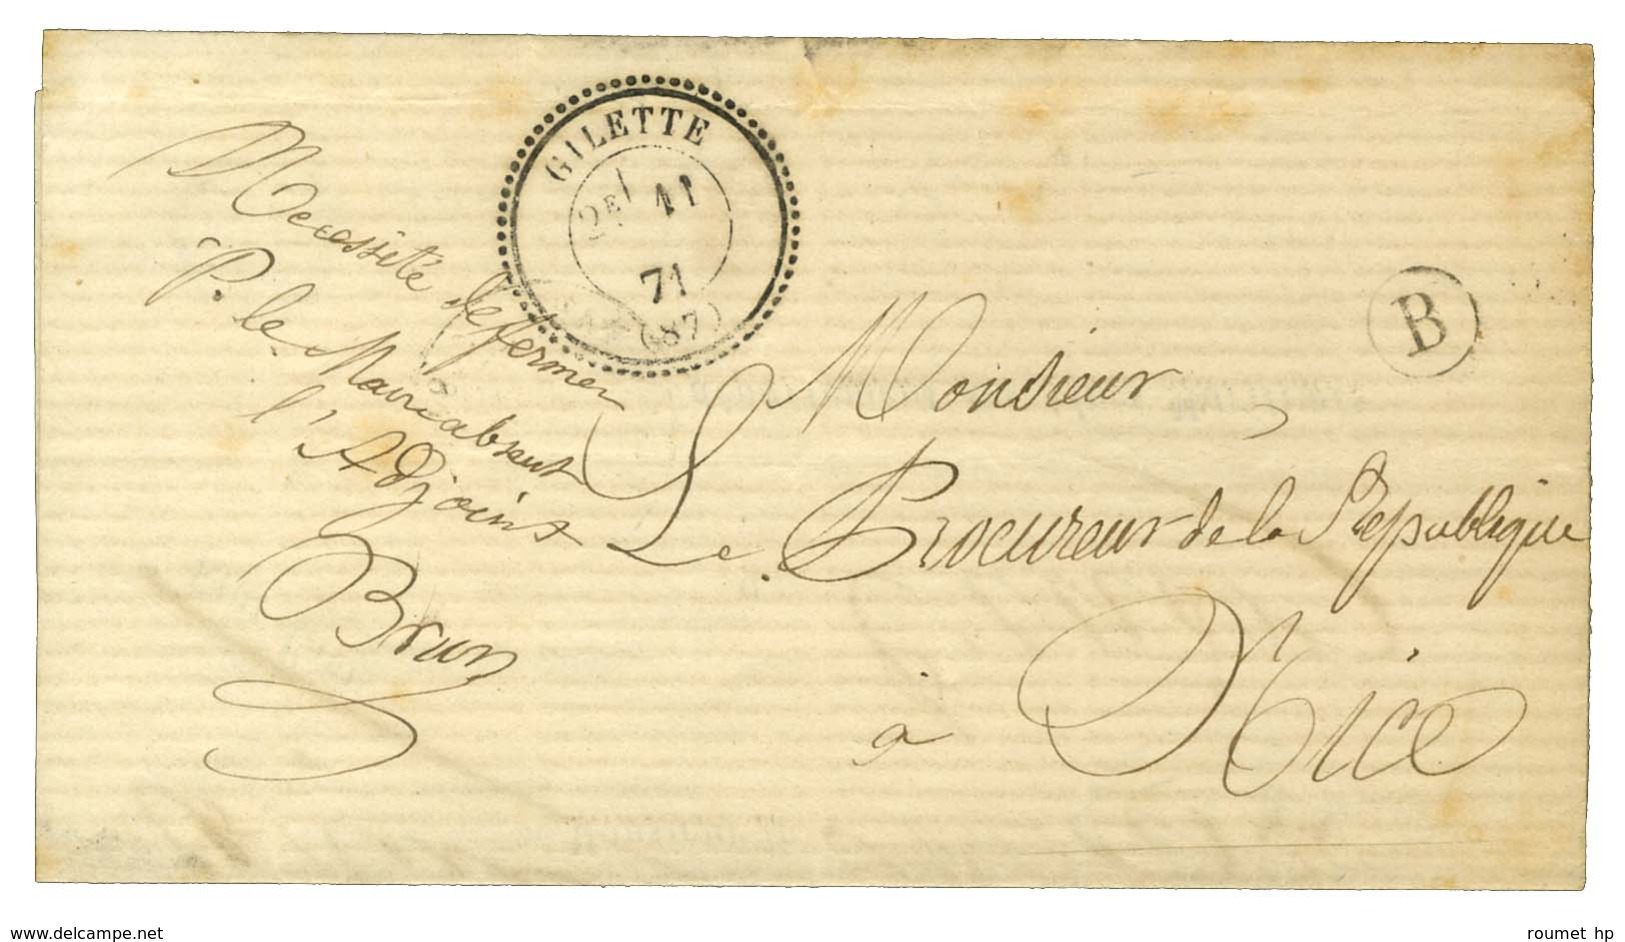 GILETTE
11
71
(87)
B
Necessité de fermer
P. le Maire absent
l'Adjoint
Brun
Monsieur
Le Procureur de la Republique
à Nice
www.delcampe.net
roumet hp